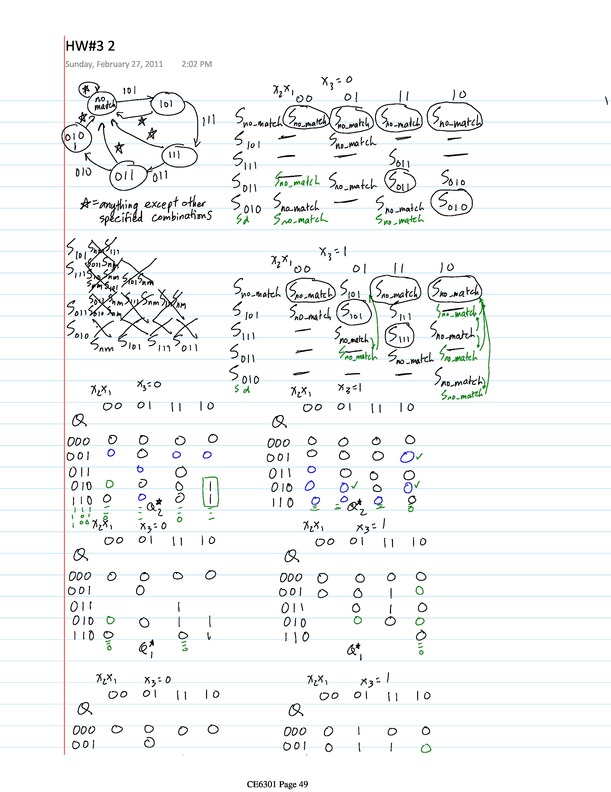 HW#3 2
Sunday, February 27, 2011 2:02 PM
no match
101
101
111
111
011
011
010
010
☆=anything except other
specified combinations
x2x1 x3=0
00 01 11 10
Sno_match Sno_match Sno_match Sno_match Sno_match
S101 — Sno_match — —
S111 — — S011 —
S011 Sno_match Sno_match S011 S010
S010 Sno_match — Sno_match S010
Sd Sno_match Sno_match
S101
S111
S011
S010
Snm S101 S111 S011
x2x1 x3=1
00 01 11 10
Sno_match Sno_match S101 Sno_match Sno_match
S101 Sno_match S101 S111 Sno_match
S111 — Sno_match S111 Sno_match
S011 — Sno_match Sno_match Sno_match
S010 — — — Sno_match
Sd Sno_match
x2x1 x3=0
00 01 11 10
Q
000 0 0 0 0
001 0 0 0 0
011 0 0 1
010 0 0 0 1
110 0 0 0 1
Q2*
x2x1 x3=1
00 01 11 10
Q
000 0 0 0 0
001 0 0 0 0 ✓
011 0 0 0 0
010 0 0 ✓ 0 0 ✓
110 0 0 0 0
Q2*
x2x1 x3=0
00 01 11 10
Q
000 0 0 0 0
001 0
011 1
010 0 0 1 1
110 0 0 1
Q1*
x2x1 x3=1
00 01 11 10
Q
000 0 0 0 0
001 0 0 1 0
011 0 1 0
010 0 0 0
110 0
Q1*
x2x1 x3=0
00 01 11 10
Q
000 0 0 0 0
001 0
x2x1 x3=1
00 01 11 10
Q
000 0 1 0 0
001 0 1 1 0
CE6301 Page 49